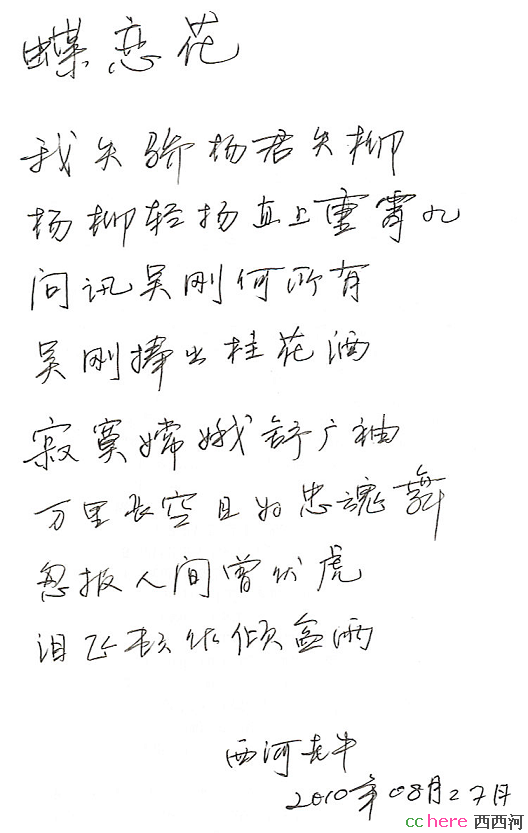 蝶恋花
我失骄杨君失柳
杨柳轻扬直上重霄九
问讯吴刚何所有
吴刚捧出桂花酒
寂寞嫦娥舒广袖
万里长空且为忠魂舞
忽报人间曾伏虎
泪飞顿作倾盆雨
西河老牛
2010年08月27日
cchere 西西河